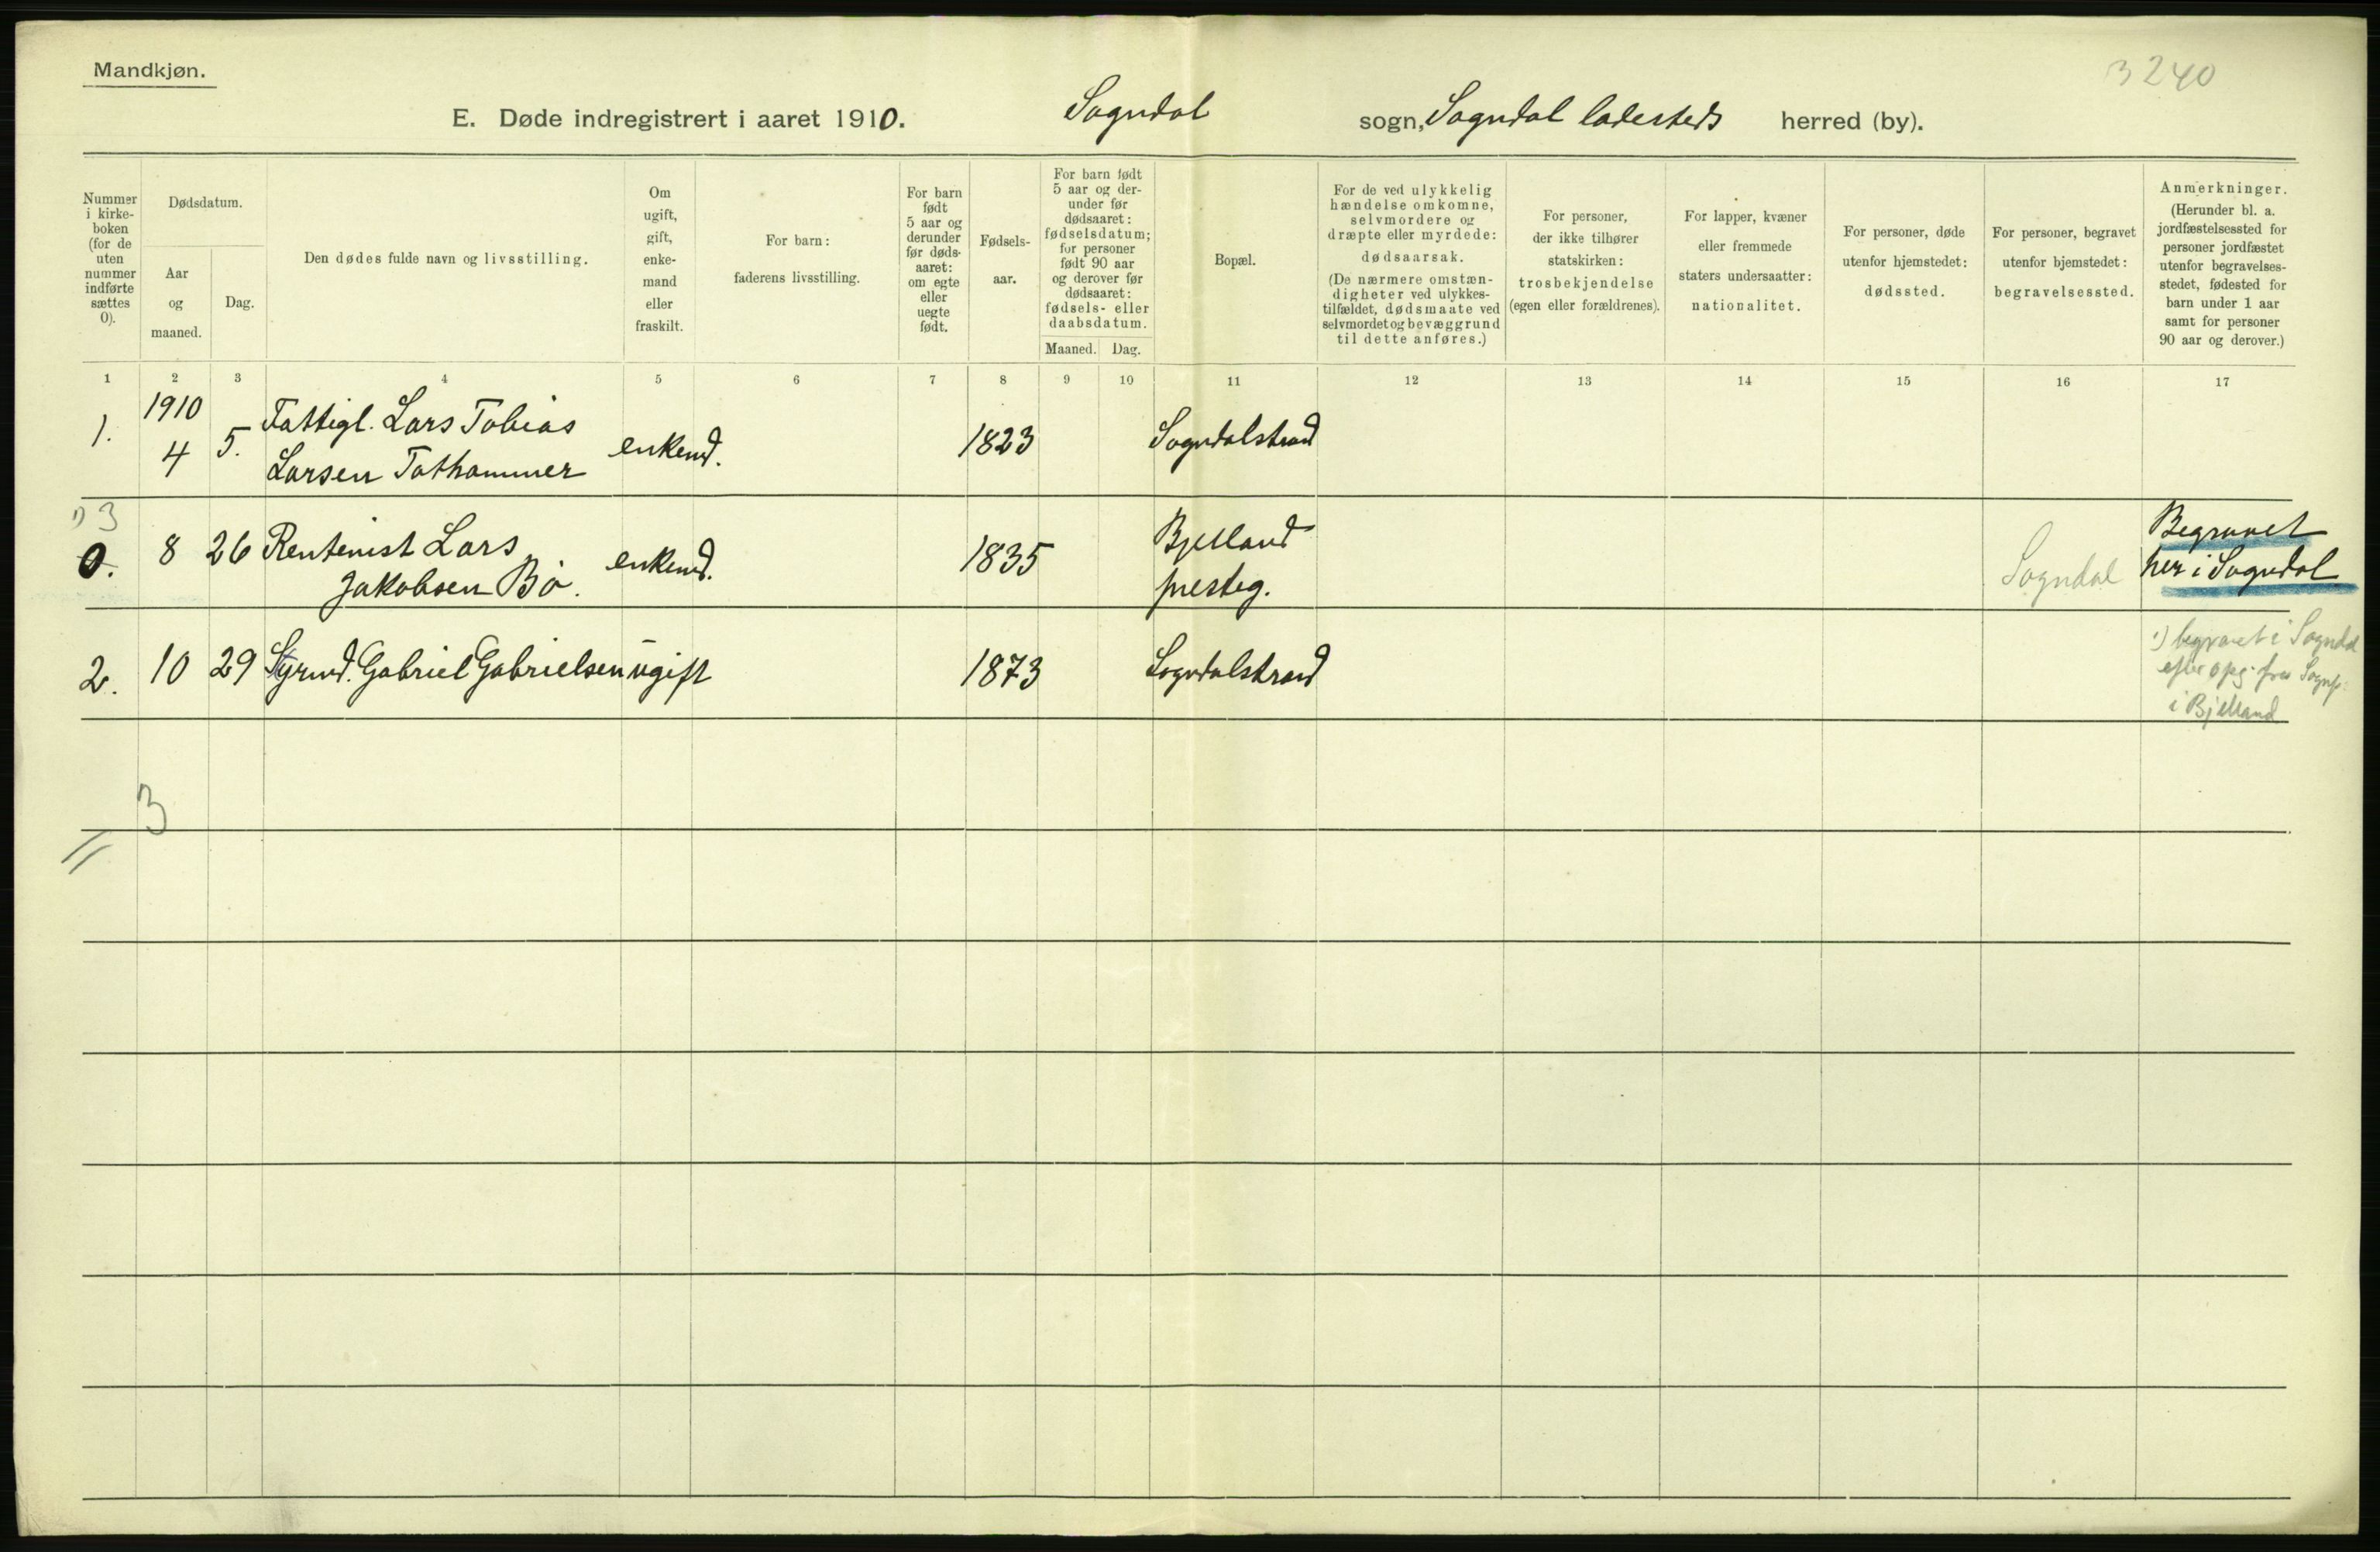 Mandkjøn.
3240
E. Døde indregistrert i aaret 1910. Sogndal sogn, Sogndal ladesteds herred (by).
Nummer i kirke-boken (for de uten nummer indførte sættes 0).
Dødsdatum.
Aar og maaned.
Dag.
Den dødes fulde navn og livsstilling.
Om ugift, gift, enke-mand eller fraskilt.
For barn: faderens livsstilling.
For barn født 5 aar og derunder før døds-aaret: om egte eller uegte født.
Fødsels-aar.
For barn født 5 aar og der-under før dødsaaret: fødselsdatum; for personer født 90 aar og derover før dødsaaret: fødsels- eller daabsdatum.
Maaned. Dag.
Bopæl.
For de ved ulykkelig hændelse omkomne, selvmordere og dræpte eller myrdede: dødsaarsak.
(De nærmere omstæn-digheter ved ulykkes-tilfældet, dødsmaate ved selvmordet og bevæggrund til dette anføres.)
For personer, der ikke tilhører statskirken: trosbekjendelse (egen eller forældrenes).
For lapper, kvæner eller fremmede staters undersaatter: nationalitet.
For personer, døde utenfor hjemstedet: dødssted.
For personer, begravet utenfor bjemstedet: begravelsessted.
Anmerkninger.
(Herunder bl. a. jordfæstelsessted for personer jordfæstet utenfor begravelses-stedet, fødested for barn under 1 aar samt for personer 90 aar og derover.)
1 2 3 4 5 6 7 8 9 10 11 12 13 14 15 16 17
1910
1. 4 5. Fattigl. Lars Tobias enkemd. 1823 Sogndalstrand
Larsen Tathammer
1) 3
0. 8 26 Rentenist Lars enkemd. 1835 Bjelland Sogndal Begravet
Jakobsen Bö. presteg. her i Sogndal
2. 10 29 Styrmd. Gabriel Gabrielsen ugift 1873 Sogndalstrand
1) begravet i Sogndal
efter opg. fra Sognepr.
i Bjelland
3